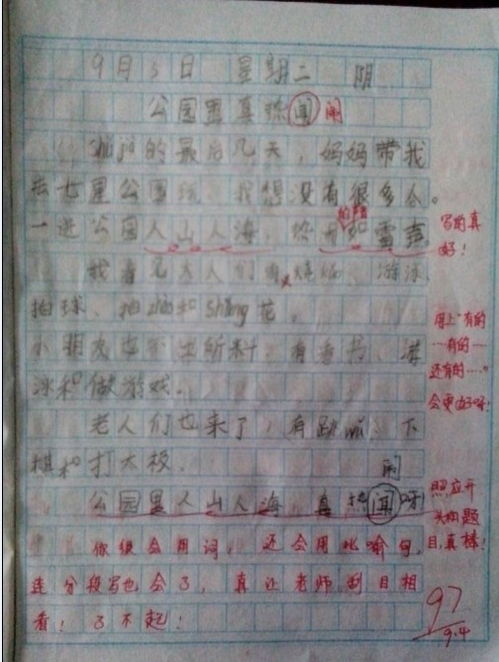 9月3日 星期二 阴
公园里真热闻 闹
的最后几天，妈妈带我
去七星公园玩，我想没有很多人。
一进公园人山人海，
写的真
好！
我看见大人们有 烧烤、游泳、
拍球、拍zhào和shǎng花。
用上“有的
……有的……
还有的……”
会更好呀！
小朋友也 有看书、游
泳和做游戏。
老人们也来了，有跳wǔ、下
棋和打太极。
闹
公园里人山人海，真热闻呀
照应开
头和题
目，真棒！
你很会用词，还会用比喻句，
连分段写也会了，真让老师刮目相
看！了不起！
97
9.4